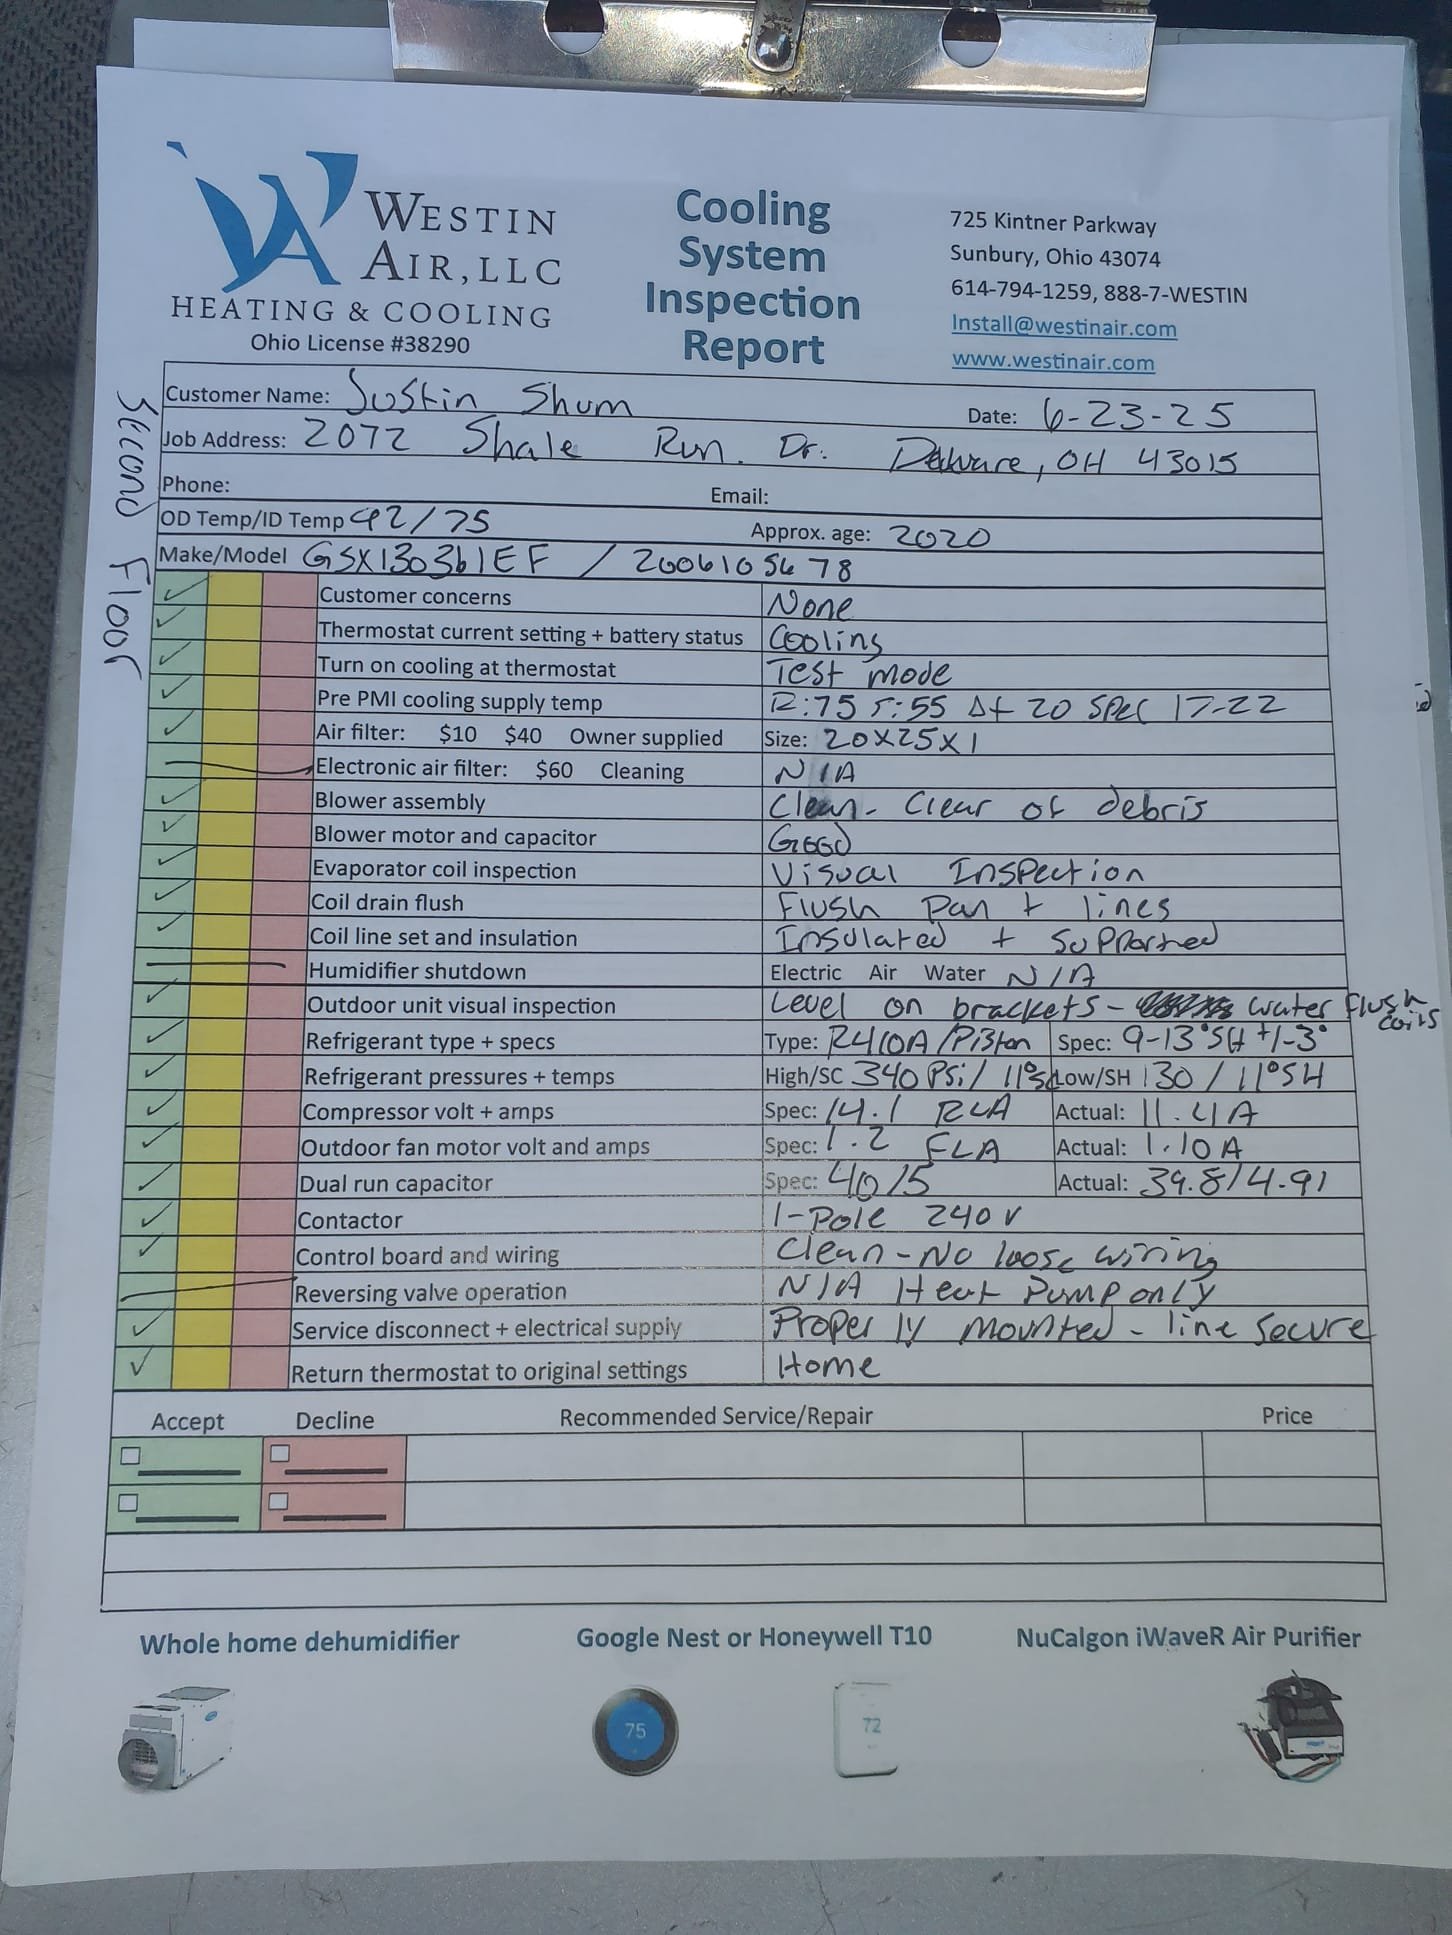 WESTIN
AIR, LLC
HEATING & COOLING
Ohio License #38290
Cooling
System
Inspection
Report
725 Kintner Parkway
Sunbury, Ohio 43074
614-794-1259, 888-7-WESTIN
Install@westinair.com
www.westinair.com
Second Floor
Customer Name: Justin Shum Date: 6-23-25
Job Address: 2072 Shale Run. Dr. Delware, OH 43015
Phone: Email:
OD Temp/ID Temp 92/75 Approx. age: 2020
Make/Model GSX130361EF / 2006105678
Customer concerns None
Thermostat current setting + battery status Cooling
Turn on cooling at thermostat Test mode
Pre PMI cooling supply temp R:75 S:55 Δt 20 Spec 17-22
Air filter: $10 $40 Owner supplied Size: 20x25x1
Electronic air filter: $60 Cleaning N/A
Blower assembly Clean - Clear of debris
Blower motor and capacitor Good
Evaporator coil inspection Visual Inspection
Coil drain flush Flush Pan + lines
Coil line set and insulation Insulated + Supported
Humidifier shutdown Electric Air Water N/A
Outdoor unit visual inspection Level on brackets - water flush coils
Refrigerant type + specs Type: R410A/Piston Spec: 9-13°SH +/-3°
Refrigerant pressures + temps High/SC 340 Psi/ 11°sc Low/SH 130 / 11°SH
Compressor volt + amps Spec: 14.1 RLA Actual: 11.4A
Outdoor fan motor volt and amps Spec: 1.2 FLA Actual: 1.10A
Dual run capacitor Spec: 40/5 Actual: 39.8/4.91
Contactor 1-Pole 240v
Control board and wiring Clean - No loose wiring
Reversing valve operation N/A Heat Pump only
Service disconnect + electrical supply Properly mounted - line secure
Return thermostat to original settings Home
Accept Decline Recommended Service/Repair Price
Whole home dehumidifier Google Nest or Honeywell T10 NuCalgon iWaveR Air Purifier
75 72